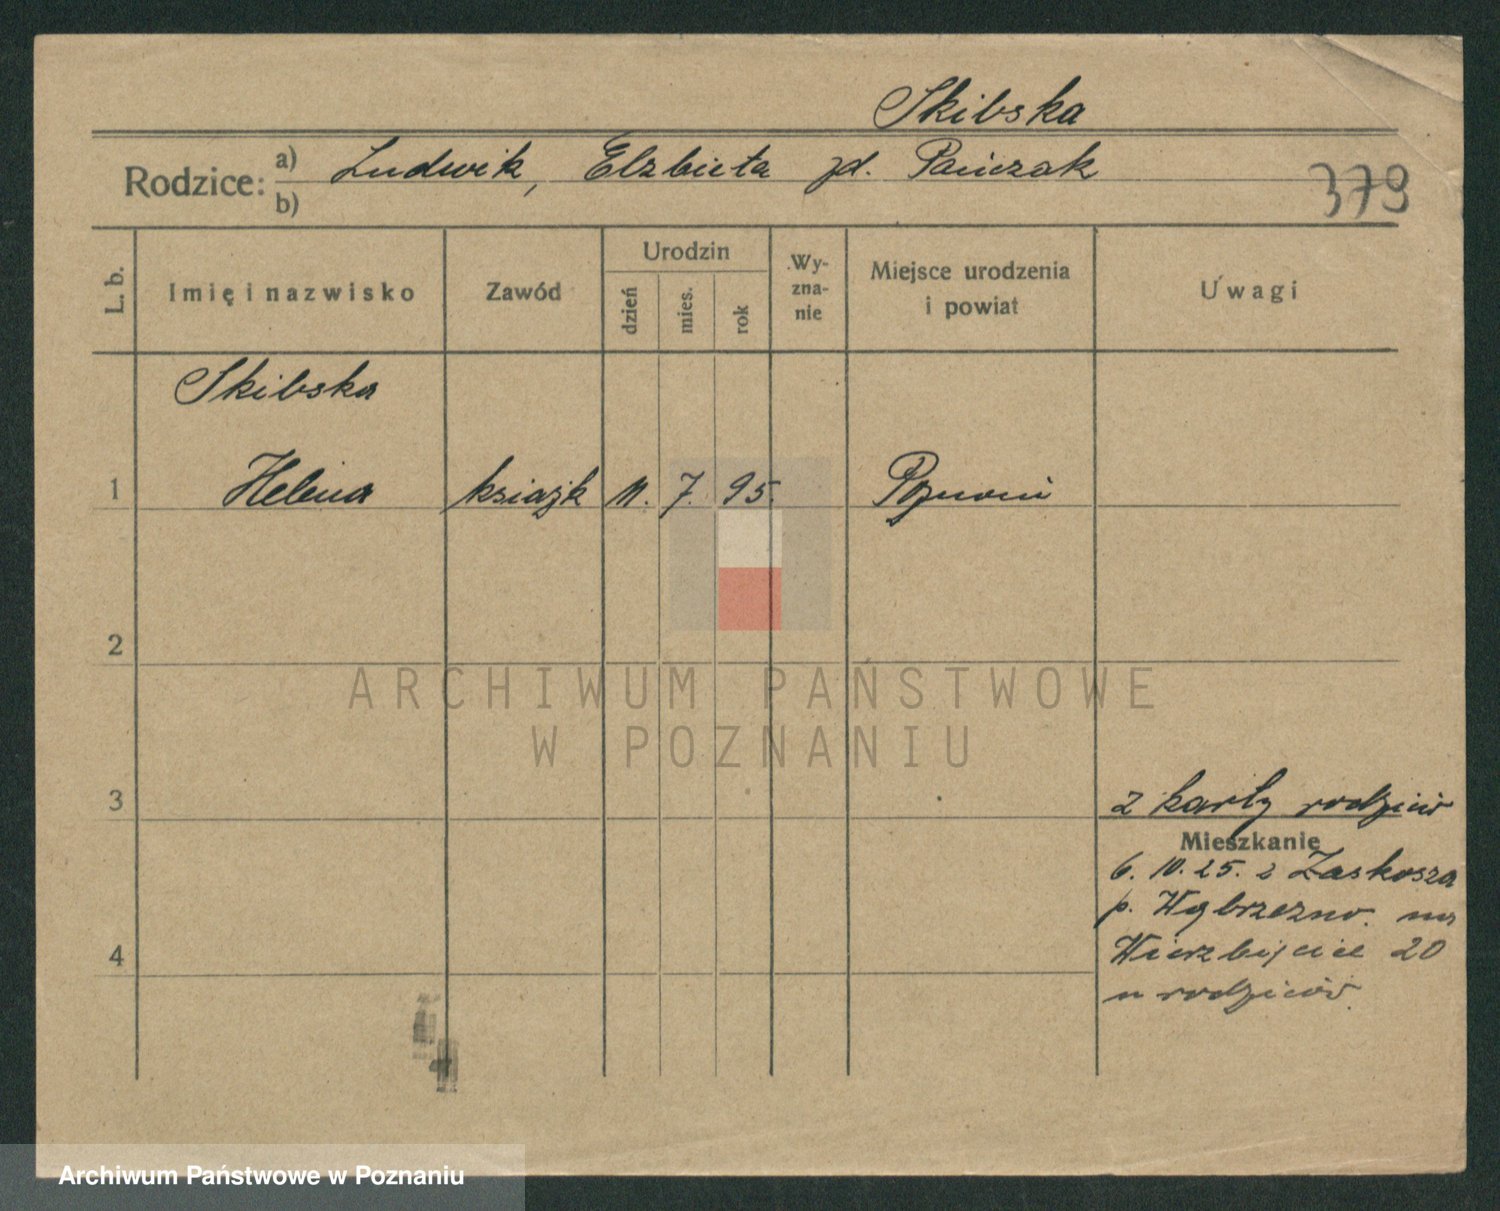 Skibska
Rodzice: a) Ludwik, Elzbieta zd. Pańczak
b)
379
L. b. Imię i nazwisko Zawód Urodzin dzień mies. rok Wy-zna-nie Miejsce urodzenia i powiat Uwagi
Skibska
1 Helena książk 11. 7. 95. Poznań
2
ARCHIWUM PAŃSTWOWE
W POZNANIU
3 z karty rodziców
Mieszkanie
6. 10. 25. z Zaskosza
p. Wąbrzezno. na
4 Wierzbięcice 20
u rodziców.
Archiwum Państwowe w Poznaniu